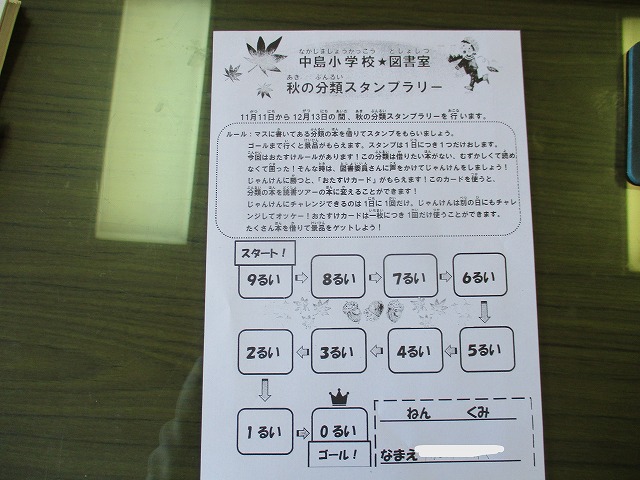 なかしましょうがっこう としょしつ
中島小学校★図書室
あき ぶんるい
秋の分類スタンプラリー
11月11日から12月13日の間、秋の分類スタンプラリーを行います。
ルール：マスに書いてある分類の本を借りてスタンプをもらいましょう。
ゴールまで行くと景品がもらえます。スタンプは1日につき1つだけおします。
今回はおたすけルールがあります！この分類は借りたい本がない、むずかしくて読め
なくて困った！そんな時は、図書委員さんに声をかけてじゃんけんをしましょう！
じゃんけんに勝つと、「おたすけカード」がもらえます！このカードを使うと、
分類の本を読書ツアーの本に変えることができます！
じゃんけんにチャレンジできるのは1日に1回だけ。じゃんけんは別の日にもチャレ
ンジしてオッケー！おたすけカードは一枚につき1回だけ使うことができます。
たくさん本を借りて景品をゲットしよう！
スタート！
9るい
8るい
7るい
6るい
5るい
4るい
3るい
2るい
1るい
0るい
ゴール！
ねん くみ
なまえ